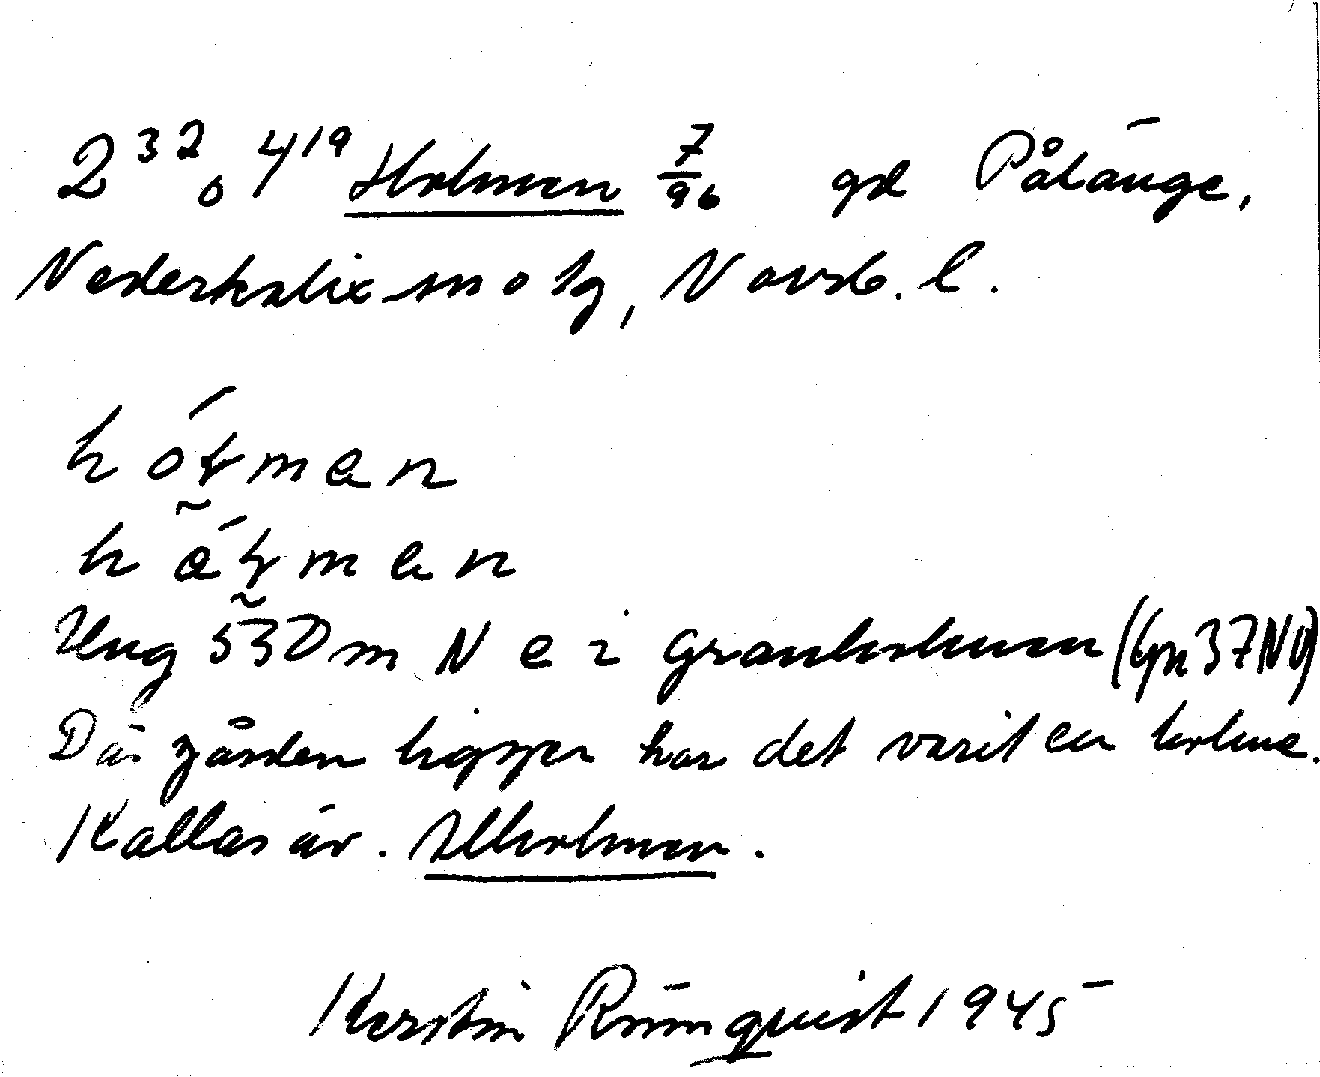 2³² o 4¹⁹ Holmen 7/96 gd Pålänge,
Nederkalix sn o tg, Norrb. l.
hółmen
hãłmen
Ung 530 m N e i Granholmen (Gpn 37 NV)
Där gården ligger har det varit en holme.
Kallas äv. Ullholmen.
Kerstin Rönnquist 1945